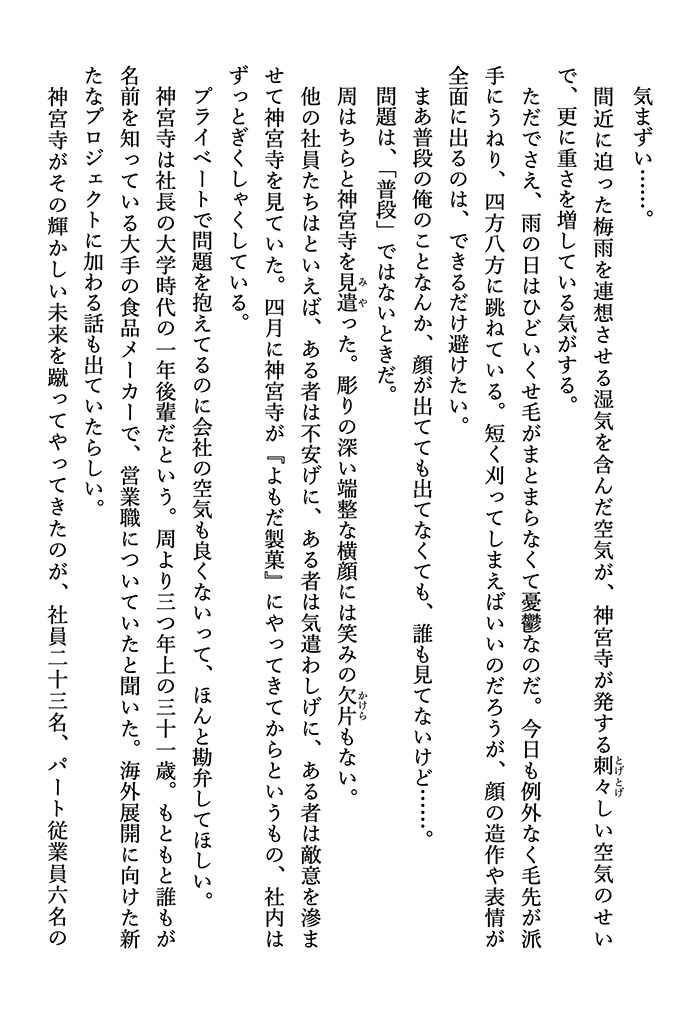 気まずい……。
間近に迫った梅雨を連想させる湿気を含んだ空気が、神宮寺が発する刺々しい空気のせい
とげとげ
で、更に重さを増している気がする。
ただでさえ、雨の日はひどいくせ毛がまとまらなくて憂鬱なのだ。今日も例外なく毛先が派
手にうねり、四方八方に跳ねている。短く刈ってしまえばいいのだろうが、顔の造作や表情が
全面に出るのは、できるだけ避けたい。
まあ普段の俺のことなんか、顔が出てても出てなくても、誰も見てないけど……。
問題は、「普段」ではないときだ。
周はちらと神宮寺を見遣った。彫りの深い端整な横顔には笑みの欠片もない。
みや
かけら
他の社員たちはといえば、ある者は不安げに、ある者は気遣わしげに、ある者は敵意を滲ま
せて神宮寺を見ていた。四月に神宮寺が『よもだ製菓』にやってきてからというもの、社内は
ずっとぎくしゃくしている。
プライベートで問題を抱えてるのに会社の空気も良くないって、ほんと勘弁してほしい。
神宮寺は社長の大学時代の一年後輩だという。周より三つ年上の三十一歳。もともと誰もが
名前を知っている大手の食品メーカーで、営業職についていたと聞いた。海外展開に向けた新
たなプロジェクトに加わる話も出ていたらしい。
神宮寺がその輝かしい未来を蹴ってやってきたのが、社員二十三名、パート従業員六名の